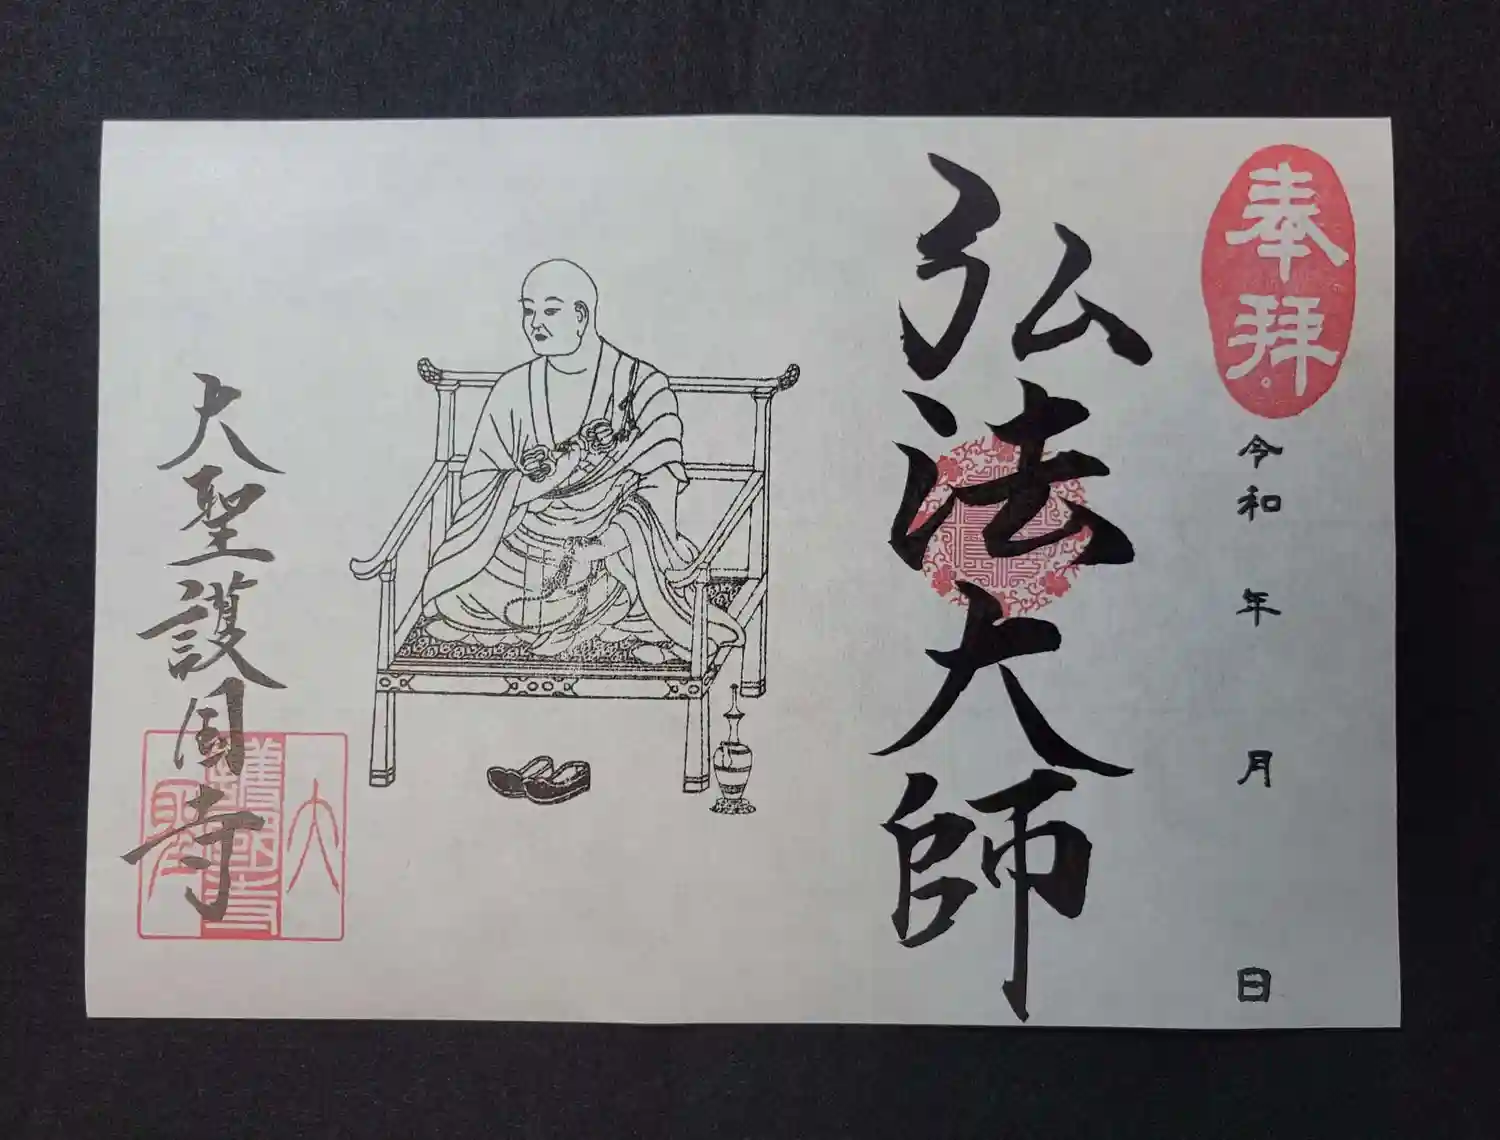 奉拝
令和 年 月 日
弘法大師
大聖護国寺
大
護國寺
聖